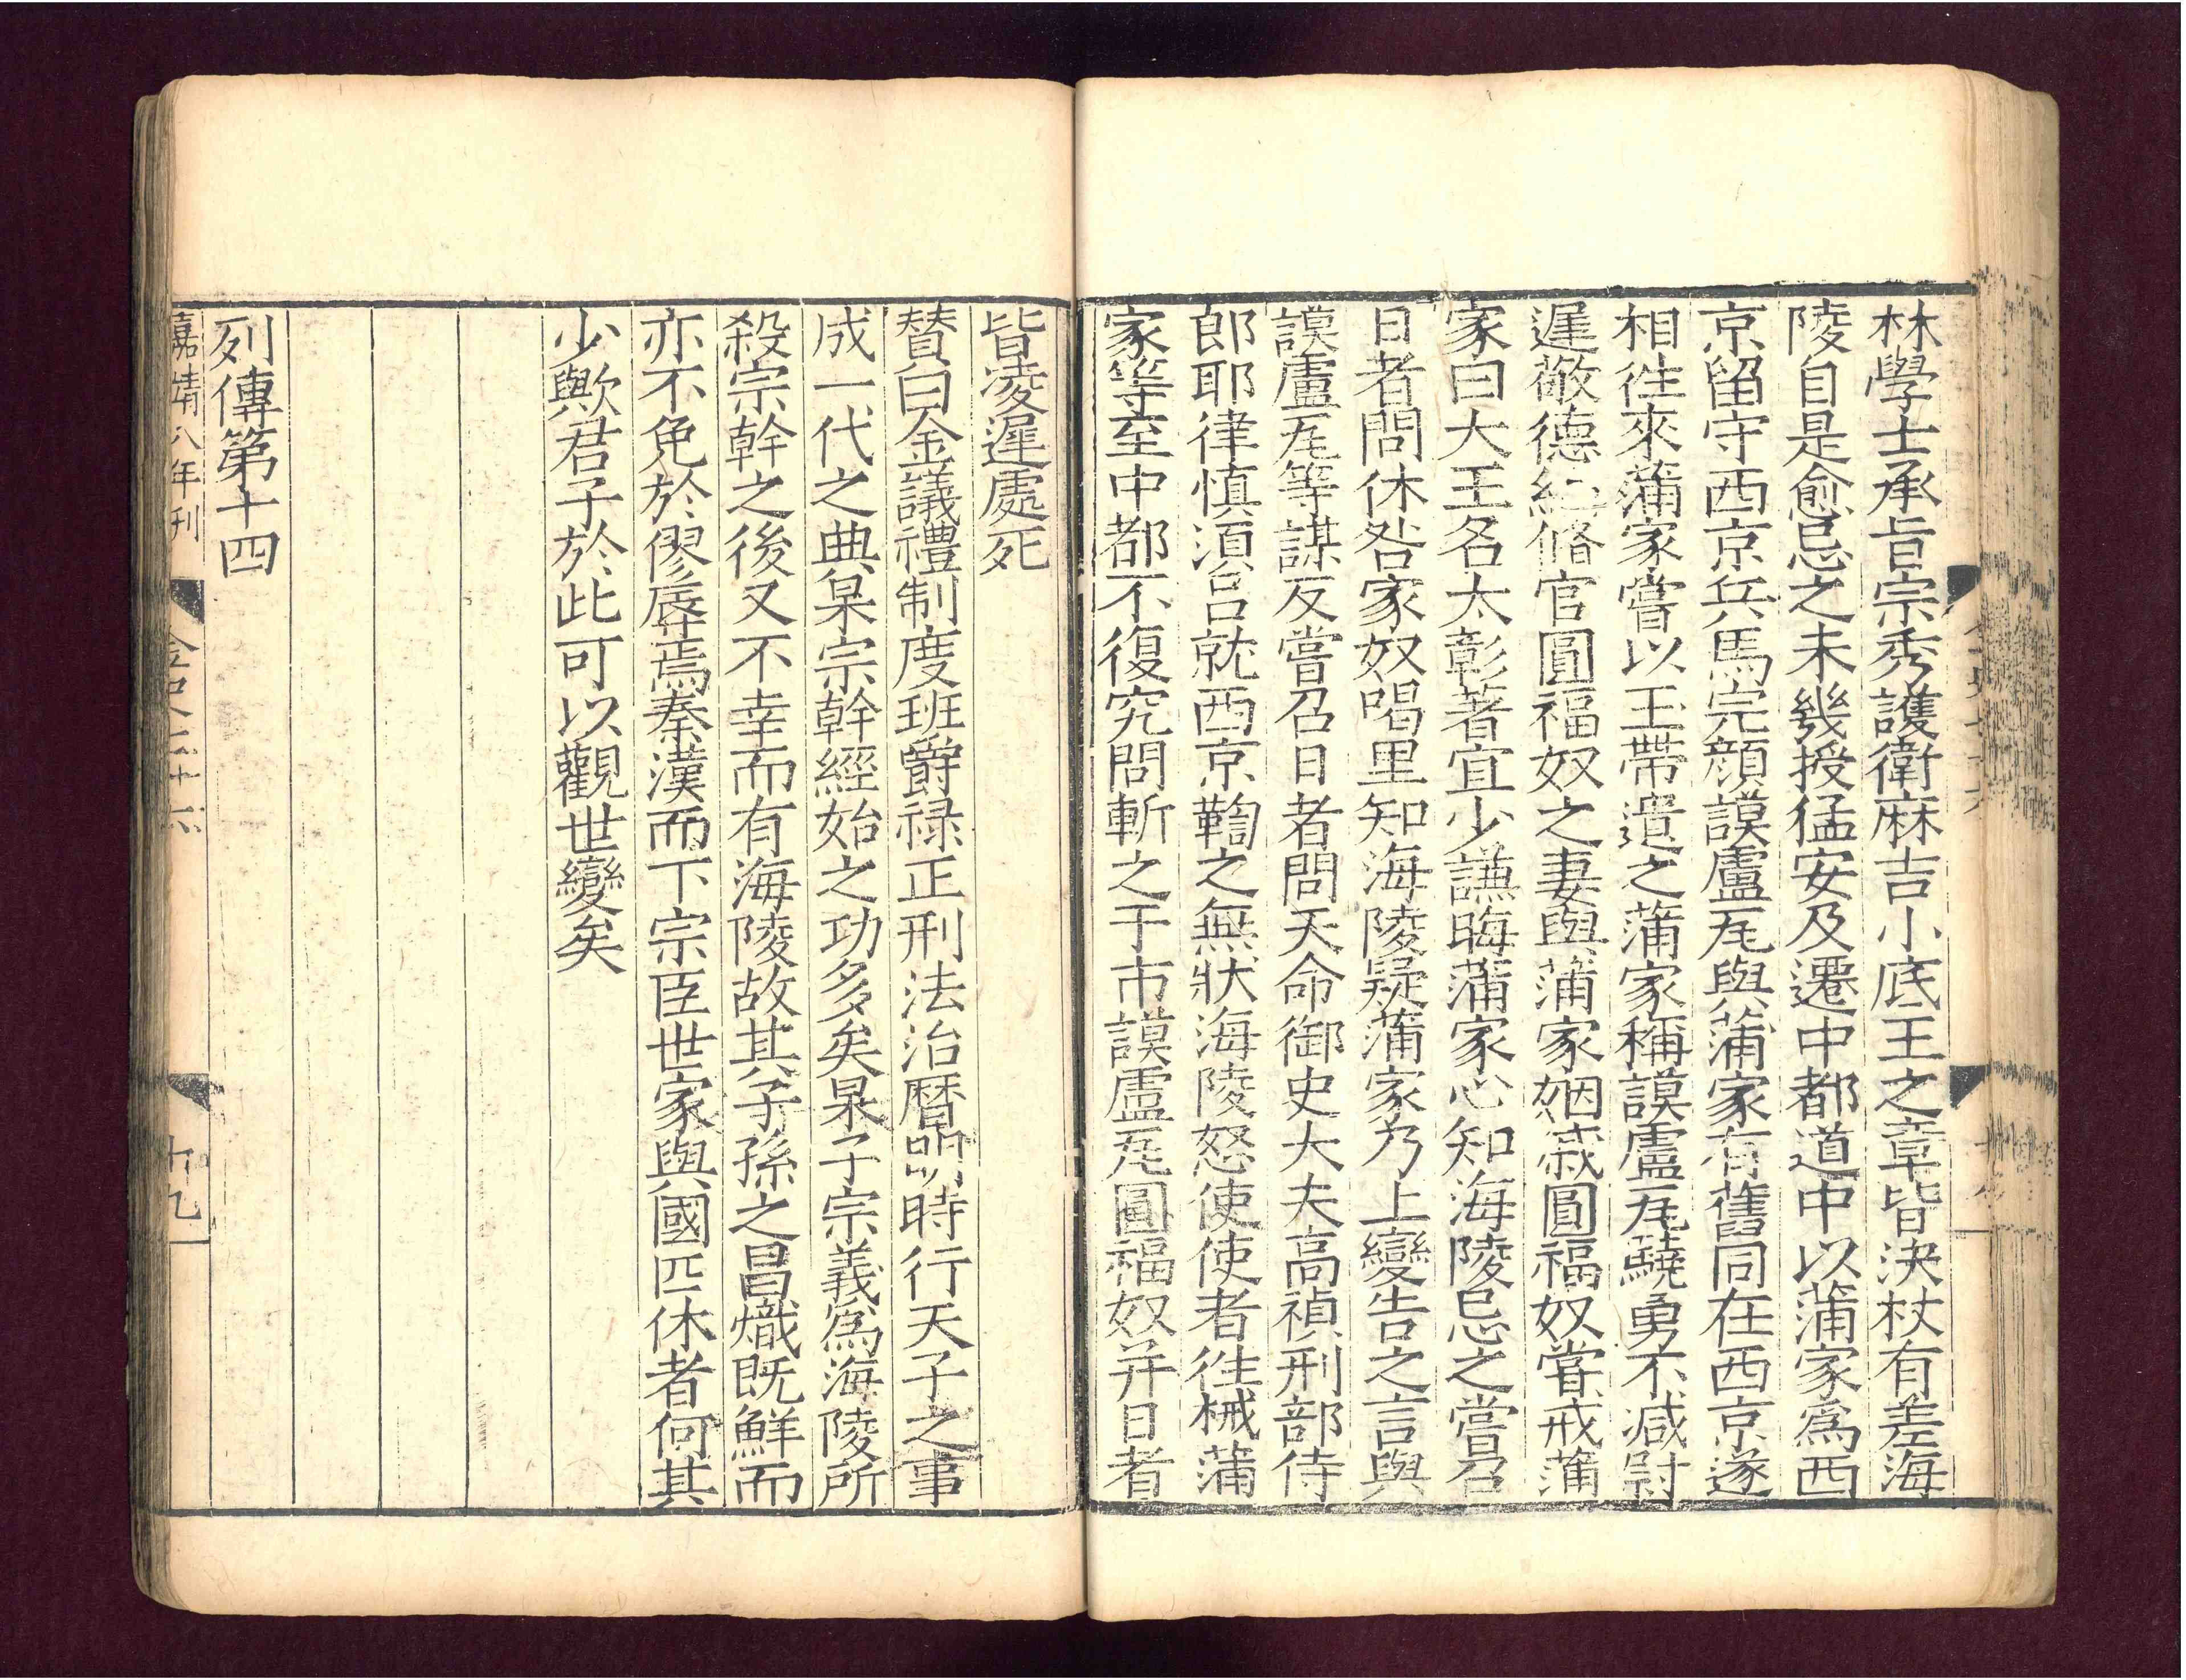 林學士承旨宗秀護衛麻吉小底王之章皆決杖有差海
陵自是愈忌之未幾授猛安及遷中都道中以蒲家爲西
京留守西京兵馬完顔謨盧瓦與蒲家有舊同在西京遂
相徃來蒲家嘗以玉帶遺之蒲家稱謨盧瓦驍勇不减尉
遲敬德編脩官圓福奴之妻與蒲家姻戚圓福奴嘗戒蒲
家曰大王名太彰著宜少謙晦蒲家心知海陵忌之嘗召
日者問休咎家奴喝里知海陵疑蒲家乃上變告之言與
謨盧瓦等謀反嘗召日者問天命御史大夫高禎刑部侍
郎耶律慎須呂就西京鞫之無狀海陵怒使使者徃械蒲
家等至中都不復究問斬之于市謨盧瓦圓福奴并日者
皆凌遲處死
賛曰金議禮制度班爵禄正刑法治曆明時行天子之事
成一代之典杲宗幹經始之功多矣杲子宗義爲海陵所
殺宗幹之後又不幸而有海陵故其子孫之昌熾既鮮而
亦不免於僇辱焉秦漢而下宗臣世家與國匹休者何其
少歟君子於此可以觀世變矣
列傳第十四
嘉靖八年刊
十九